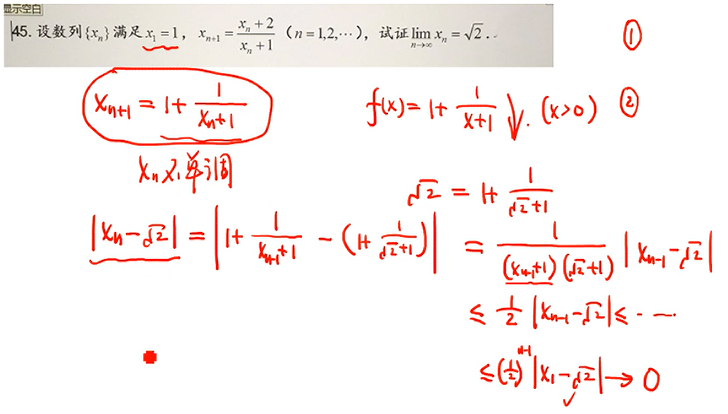 显示空白
45. 设数列{xₙ}满足x₁=1, xₙ₊₁=(xₙ+2)/(xₙ+1) (n=1,2,⋯), 试证lim_{n→∞} xₙ=√2.
①
xₙ₊₁=1+1/(xₙ+1) f(x)=1+1/(x+1)↓. (x>0) ②
xₙ不单调
√2=1+1/(√2+1)
|xₙ-√2|=|1+1/(xₙ₋₁+1)-(1+1/(√2+1))|=1/((xₙ₋₁+1)(√2+1))|xₙ₋₁-√2|
≤1/2|xₙ₋₁-√2|≤⋯⋯
≤(1/2)ⁿ⁻¹|x₁-√2|→0